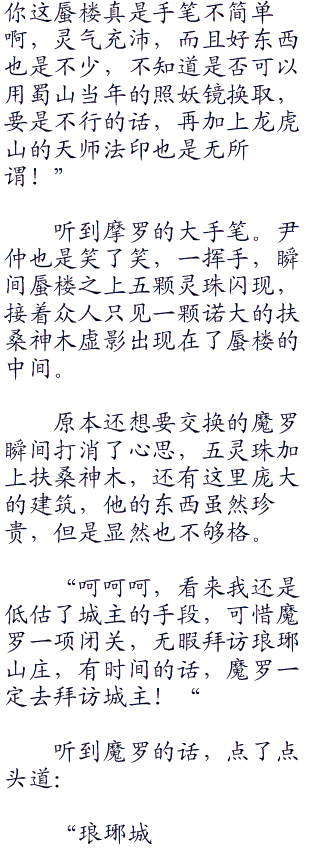 你这蜃楼真是手笔不简单
啊，灵气充沛，而且好东西
也是不少，不知道是否可以
用蜀山当年的照妖镜换取，
要是不行的话，再加上龙虎
山的天师法印也是无所
谓！”
听到摩罗的大手笔。尹
仲也是笑了笑，一挥手，瞬
间蜃楼之上五颗灵珠闪现，
接着众人只见一颗诺大的扶
桑神木虚影出现在了蜃楼的
中间。
原本还想要交换的魔罗
瞬间打消了心思，五灵珠加
上扶桑神木，还有这里庞大
的建筑，他的东西虽然珍
贵，但是显然也不够格。
“呵呵呵，看来我还是
低估了城主的手段，可惜魔
罗一项闭关，无暇拜访琅琊
山庄，有时间的话，魔罗一
定去拜访城主！“
听到魔罗的话，点了点
头道：
“琅琊城